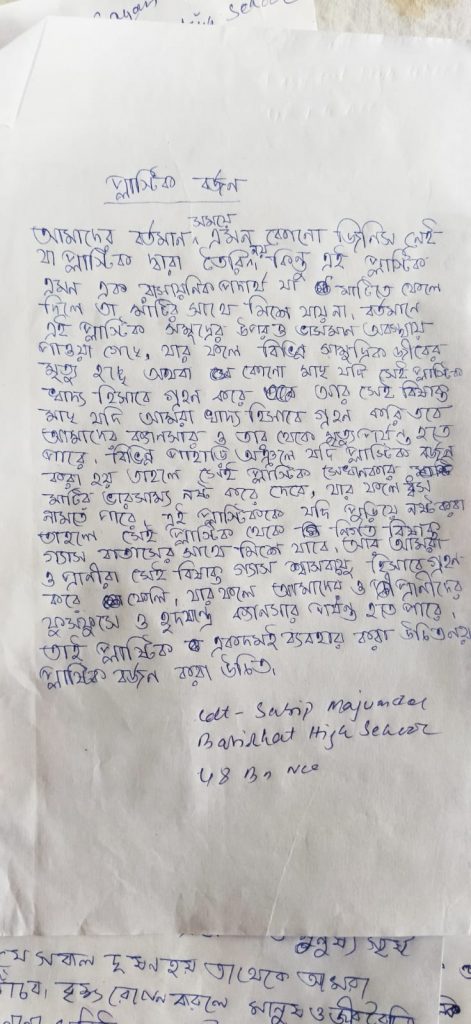 School
প্লাস্টিক বর্জন
আমাদের বর্তমান সময়ে এমন কোনো জিনিস নেই
যা প্লাস্টিক দ্বারা তৈরি নয়, কিন্তু এই প্লাস্টিক
এমন এক রাসায়নিক পদার্থ যা মাটিতে ফেলে
দিলে তা মাটির সাথে মিশে যায় না, বর্তমানে
এই প্লাস্টিক সমুদ্রের উপরও ভাসমান অবস্থায়
পাওয়া গেছে, যার ফলে বিভিন্ন সামুদ্রিক জীবের
মৃত্যু হচ্ছে অথবা কোনো মাছ যদি সেই প্লাস্টিক
খাদ্য হিসাবে গ্রহন করে আর সেই বিষাক্ত
মাছ যদি আমরা খাদ্য হিসাবে গ্রহন করি তবে
আমাদের ক্যানসার ও তার থেকে মৃত্যু পর্যন্ত হতে
পারে। বিভিন্ন পাহাড়ি অঞ্চলে যদি প্লাস্টিক বর্জন
করা হয় তাহলে সেই প্লাস্টিক সেখানকার
মাটির ভারসাম্য নষ্ট করে দেবে, যার ফলে ধ্বস
নামতে পারে। এই প্লাস্টিককে যদি পুড়িয়ে নষ্ট করা
তাহলে সেই প্লাস্টিক থেকে নির্গত বিষাক্ত
গ্যাস বাতাসের সাথে মিশে যাবে, আর আমরা
ও প্রাণীরা সেই বিষাক্ত গ্যাস শ্বাসবায়ু হিসাবে গ্রহন
করে ফেলি, যার ফলে আমাদের ও প্রাণীদের
ফুসফুসে ও হৃদযন্ত্রে ক্যানসার পর্যন্ত হতে পারে।
তাই প্লাস্টিক একদমই ব্যবহার করা উচিত নয়
প্লাস্টিক বর্জন করা উচিত।
Cdt - Majumdar
High School
48 Bn NCC
মানুষ ও